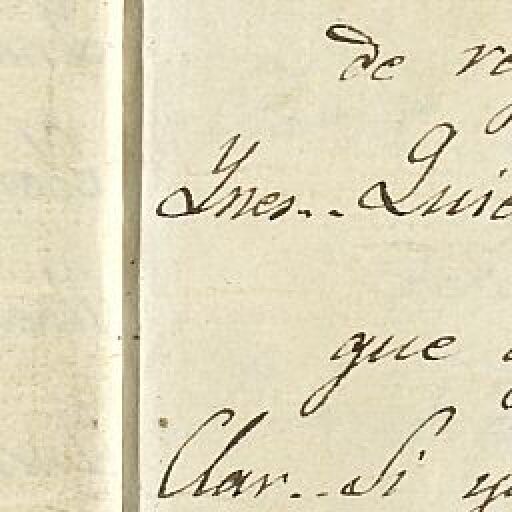 de re
Ynes.. Quie
que
Clar.. Si y